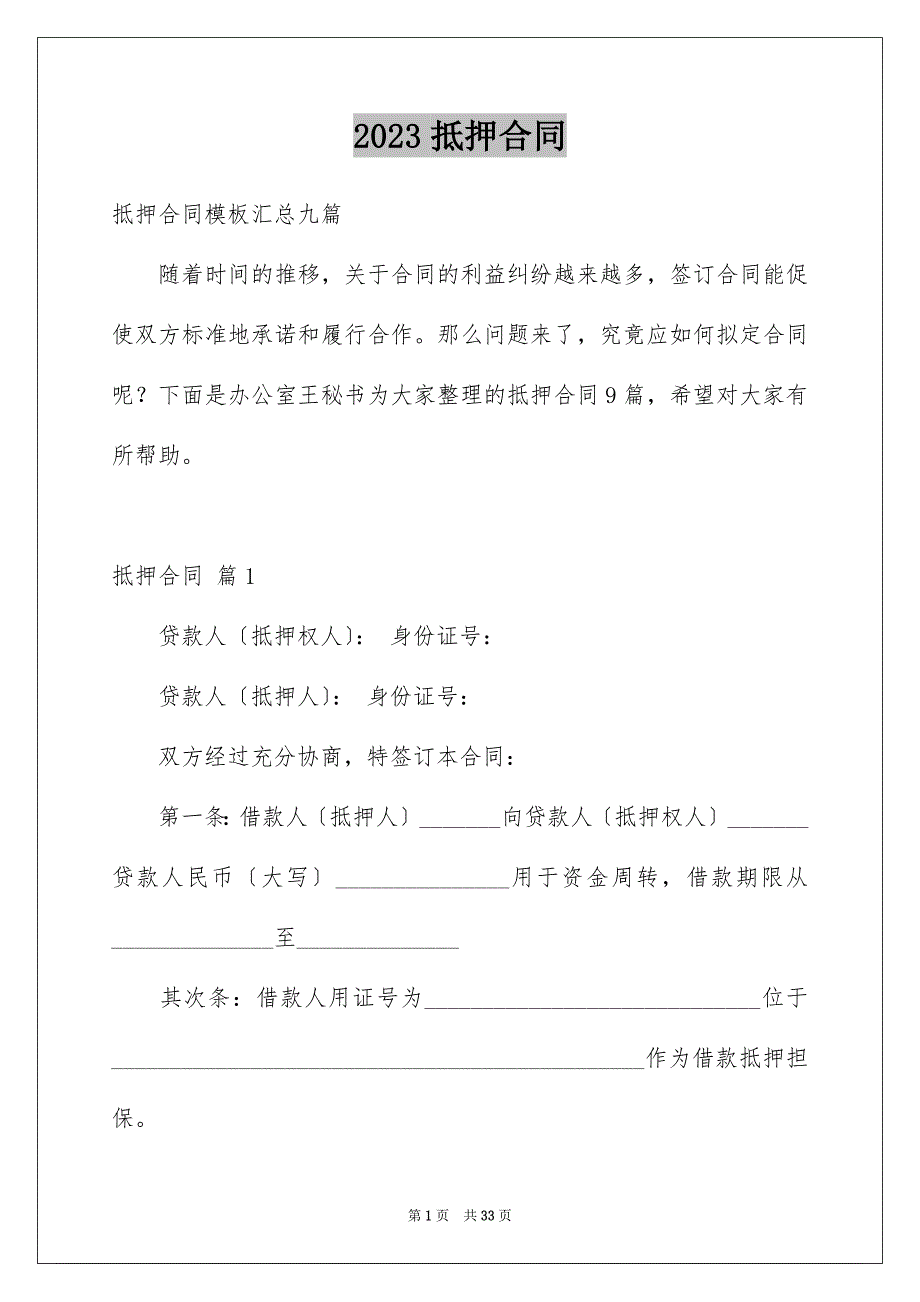 2023抵押合同
抵押合同模板汇总九篇
随着时间的推移，关于合同的利益纠纷越来越多，签订合同能促
使双方标准地承诺和履行合作。那么问题来了，究竟应如何拟定合同
呢？下面是办公室王秘书为大家整理的抵押合同9篇，希望对大家有
所帮助。
抵押合同 篇1
贷款人〔抵押权人〕： 身份证号：
贷款人〔抵押人〕： 身份证号：
双方经过充分协商，特签订本合同：
第一条：借款人〔抵押人〕_______向贷款人〔抵押权人〕_______
贷款人民币〔大写〕_______________用于资金周转，借款期限从
______________至______________
其次条：借款人用证号为_____________________________位于
______________________________________________作为借款抵押担
保。
第1页 共33页